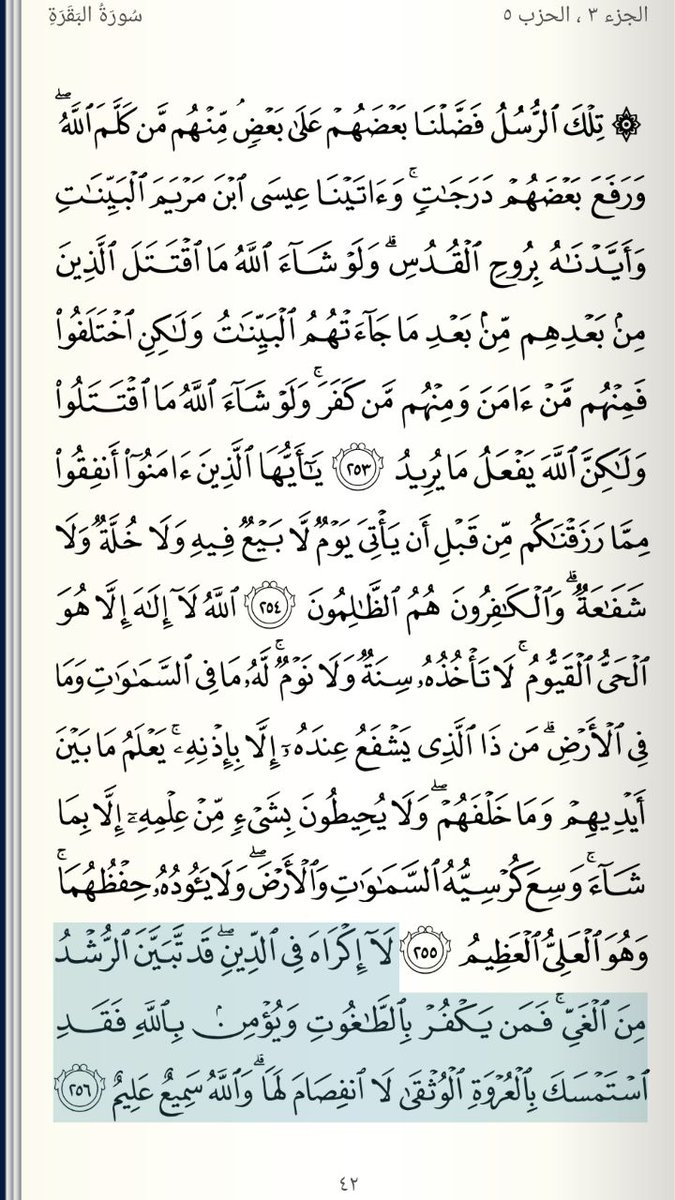 الجزء ٣ ، الحزب ٥
سُورَةُ البَقَرَةِ
۞ تِلۡكَ ٱلرُّسُلُ فَضَّلۡنَا بَعۡضَهُمۡ عَلَىٰ بَعۡضٖۘ مِّنۡهُم مَّن كَلَّمَ ٱللَّهُۖ
وَرَفَعَ بَعۡضَهُمۡ دَرَجَٰتٖۚ وَءَاتَيۡنَا عِيسَى ٱبۡنَ مَرۡيَمَ ٱلۡبَيِّنَٰتِ
وَأَيَّدۡنَٰهُ بِرُوحِ ٱلۡقُدُسِۗ وَلَوۡ شَآءَ ٱللَّهُ مَا ٱقۡتَتَلَ ٱلَّذِينَ
مِنۢ بَعۡدِهِم مِّنۢ بَعۡدِ مَا جَآءَتۡهُمُ ٱلۡبَيِّنَٰتُ وَلَٰكِنِ ٱخۡتَلَفُواْ
فَمِنۡهُم مَّنۡ ءَامَنَ وَمِنۡهُم مَّن كَفَرَۚ وَلَوۡ شَآءَ ٱللَّهُ مَا ٱقۡتَتَلُواْ
وَلَٰكِنَّ ٱللَّهَ يَفۡعَلُ مَا يُرِيدُ ٢٥٣ يَٰٓأَيُّهَا ٱلَّذِينَ ءَامَنُوٓاْ أَنفِقُواْ
مِمَّا رَزَقۡنَٰكُم مِّن قَبۡلِ أَن يَأۡتِيَ يَوۡمٞ لَّا بَيۡعٞ فِيهِ وَلَا خُلَّةٞ وَلَا
شَفَٰعَةٞۗ وَٱلۡكَٰفِرُونَ هُمُ ٱلظَّٰلِمُونَ ٢٥٤ ٱللَّهُ لَآ إِلَٰهَ إِلَّا هُوَ
ٱلۡحَيُّ ٱلۡقَيُّومُۚ لَا تَأۡخُذُهُۥ سِنَةٞ وَلَا نَوۡمٞۚ لَّهُۥ مَا فِي ٱلسَّمَٰوَٰتِ وَمَا
فِي ٱلۡأَرۡضِۗ مَن ذَا ٱلَّذِي يَشۡفَعُ عِندَهُۥٓ إِلَّا بِإِذۡنِهِۦۚ يَعۡلَمُ مَا بَيۡنَ
أَيۡدِيهِمۡ وَمَا خَلۡفَهُمۡۖ وَلَا يُحِيطُونَ بِشَيۡءٖ مِّنۡ عِلۡمِهِۦٓ إِلَّا بِمَا
شَآءَۚ وَسِعَ كُرۡسِيُّهُ ٱلسَّمَٰوَٰتِ وَٱلۡأَرۡضَۖ وَلَا يَـُٔودُهُۥ حِفۡظُهُمَاۚ
وَهُوَ ٱلۡعَلِيُّ ٱلۡعَظِيمُ ٢٥٥ لَآ إِكۡرَاهَ فِي ٱلدِّينِۖ قَد تَّبَيَّنَ ٱلرُّشۡدُ
مِنَ ٱلۡغَيِّۚ فَمَن يَكۡفُرۡ بِٱلطَّٰغُوتِ وَيُؤۡمِنۢ بِٱللَّهِ فَقَدِ
ٱسۡتَمۡسَكَ بِٱلۡعُرۡوَةِ ٱلۡوُثۡقَىٰ لَا ٱنفِصَامَ لَهَاۗ وَٱللَّهُ سَمِيعٌ عَلِيمٌ ٢٥٦
٤٢